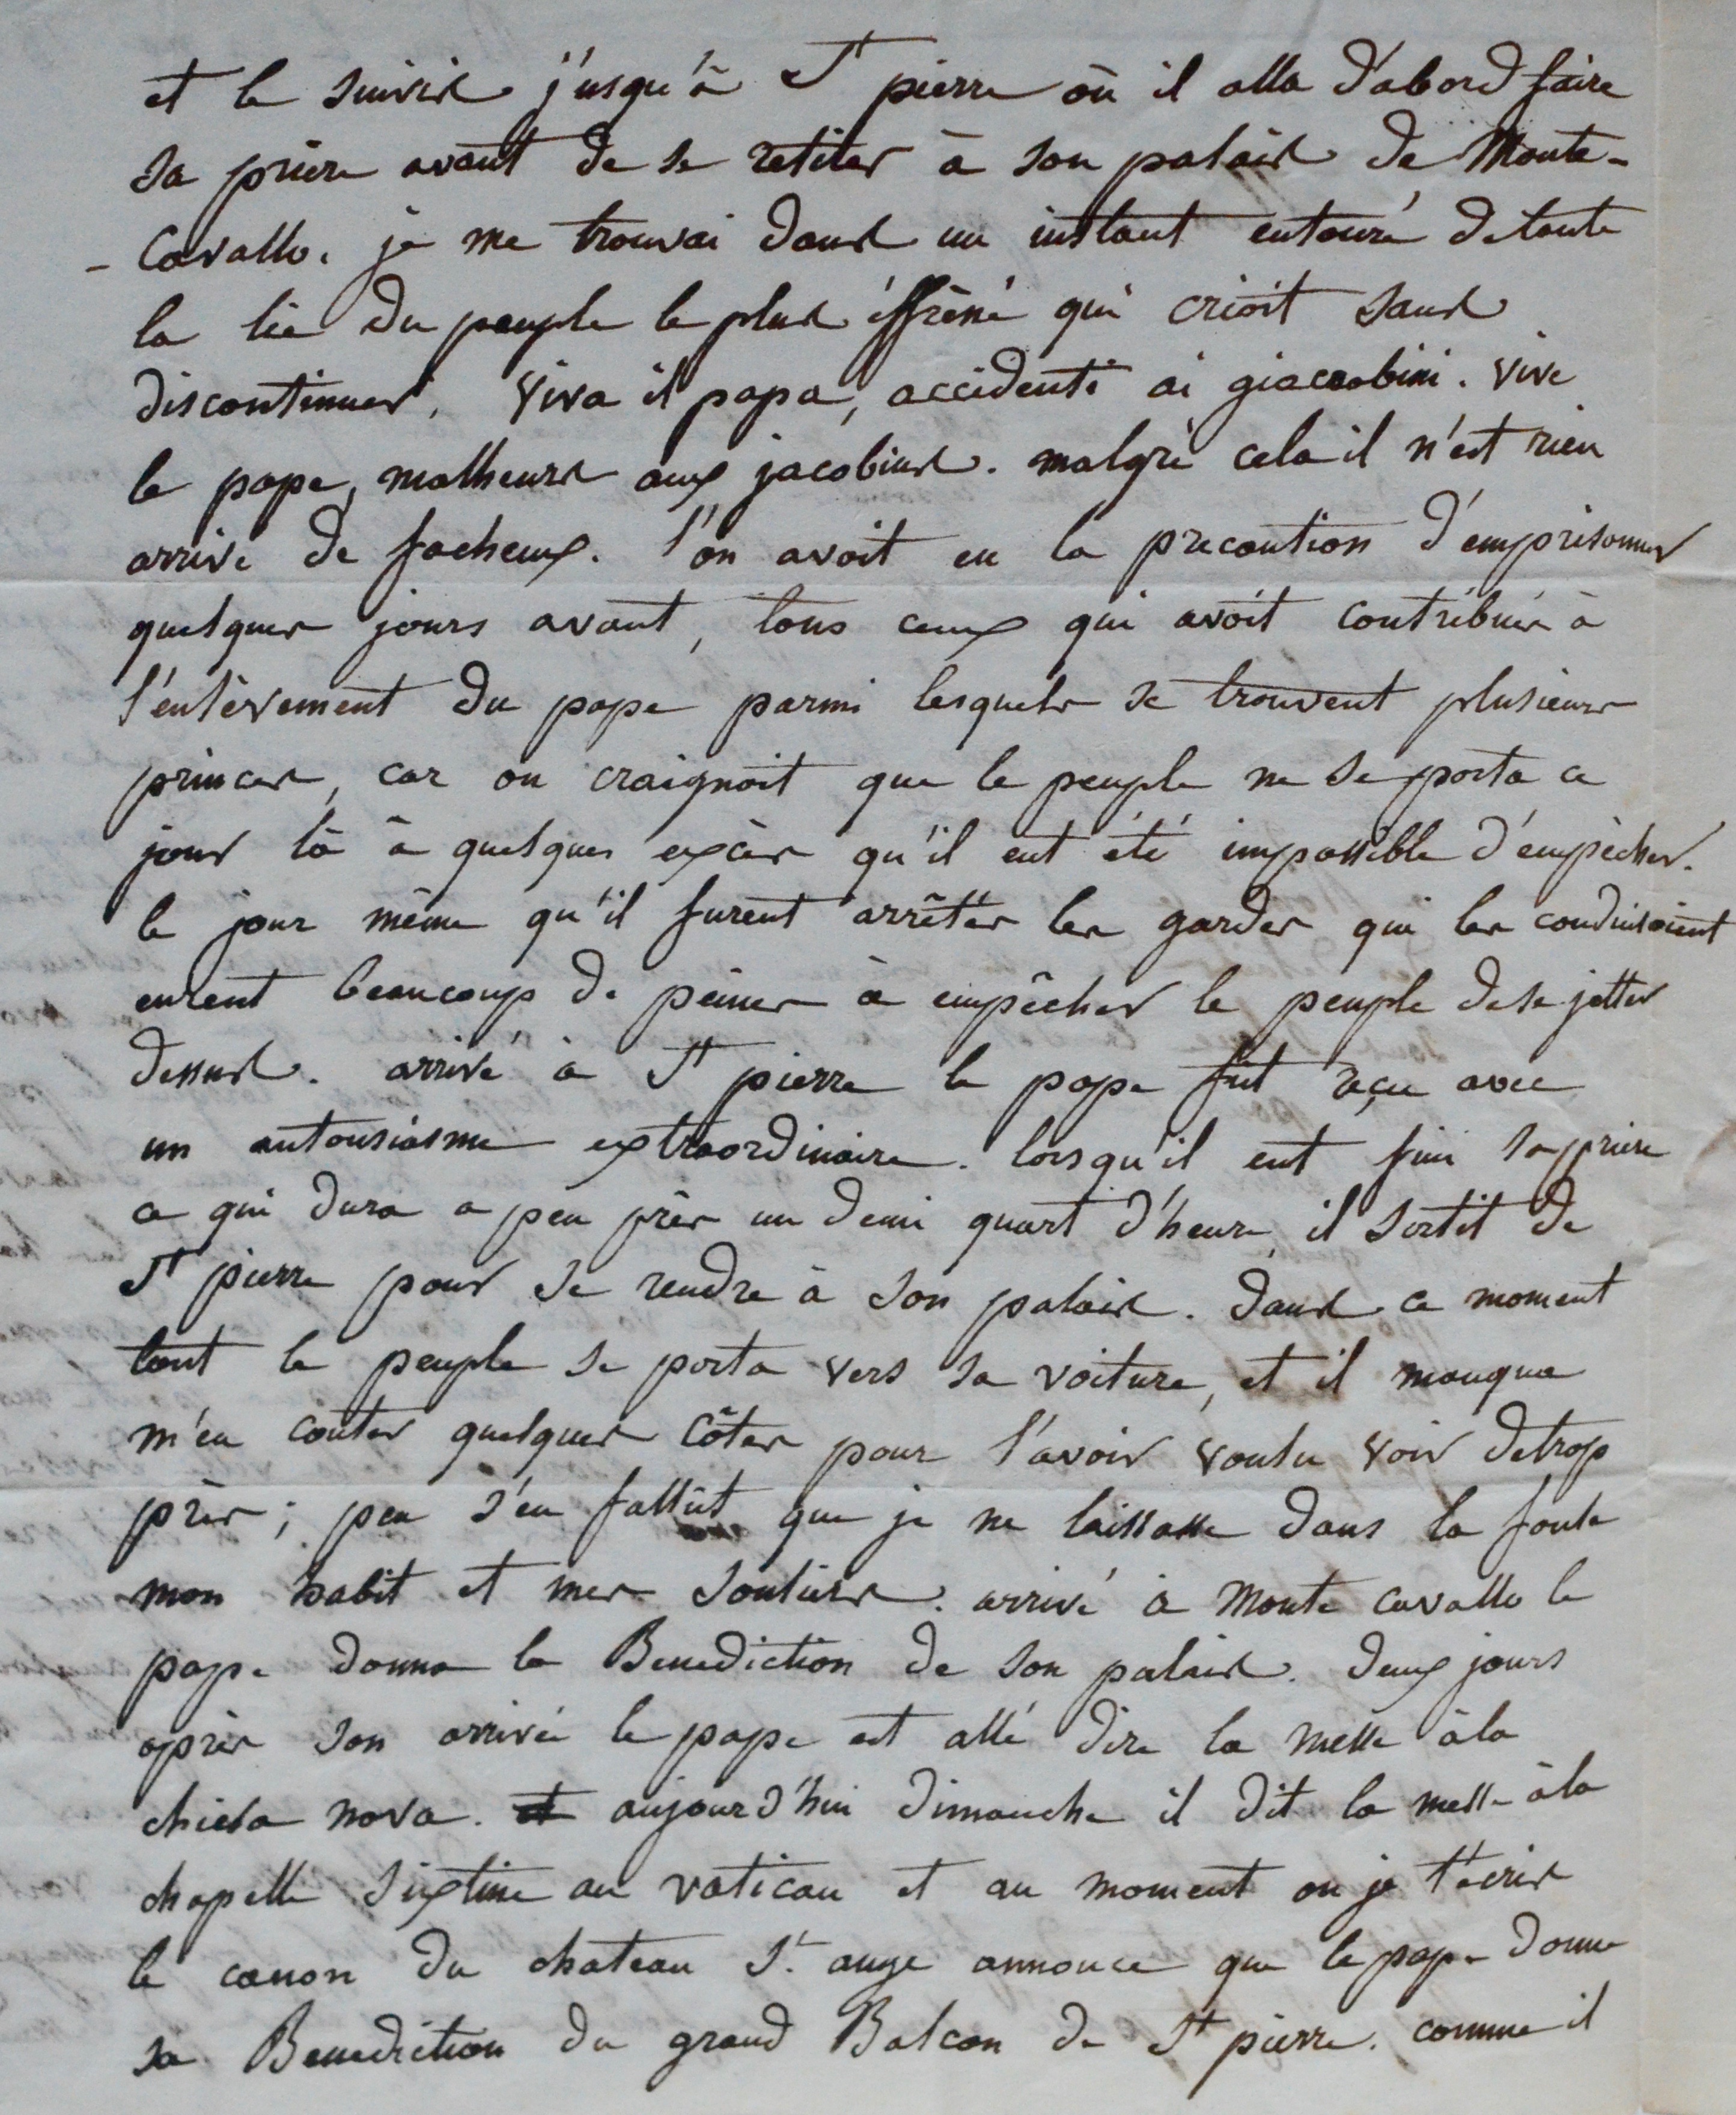 et le suivis j'usqu'à St pierre où il alla d'abord faire
sa prière avant de se retirer à son palais de Monte-
- Cavallo. je me trouvai dans un instant entouré de toute
la lie du peuple le plus éffréné qui crioit sans
discontinuer, viva il papa, accidenti ai giaccobini. vive
le pape, malheurs aux jacobins. malgré cela il n'est rien
arrivé de facheux. l'on avoit eu la precaution d'emprisonner
quelques jours avant, tous ceux qui avoit contribués à
l'enlèvement du pape parmi lesquels se trouvent plusieurs
princes, car on craignoit que le peuple ne se porta ce
jour là à quelques excès qu'il eut été impossible d'empècher.
le jour même qu'il furent arrêtés les gardes qui les conduisoient
eurent beaucoup de peines à empêcher le peuple de se jetter
dessus. arrivé à St pierre le pape fut reçu avec
un antousiasme extraordinaire. lorsqu'il eut fini sa priere
ce qui dura a peu près un demi quart d'heure, il sortit de
St pierre pour se rendre à son palais. dans ce moment
tout le peuple se porta vers sa voiture, et il manqua
m'en couter quelques côtes pour l'avoir voulu voir de trop
près; peu s'en fallût que je ne laissasse dans la foule
mon habit et mes souliers. arrivé à Monte cavallo le
pape donna la Benediction de son palais. deux jours
après son arrivée le pape est allé dire la messe à la
chiesa nova. et aujourd'hui dimanche il dit la messe à la
chapelle sixtine au vatican et au moment ou je t'écris
le canon du chateau St. ange annonce que le pape donne
sa Benediction du grand Balcon de St pierre. comme il